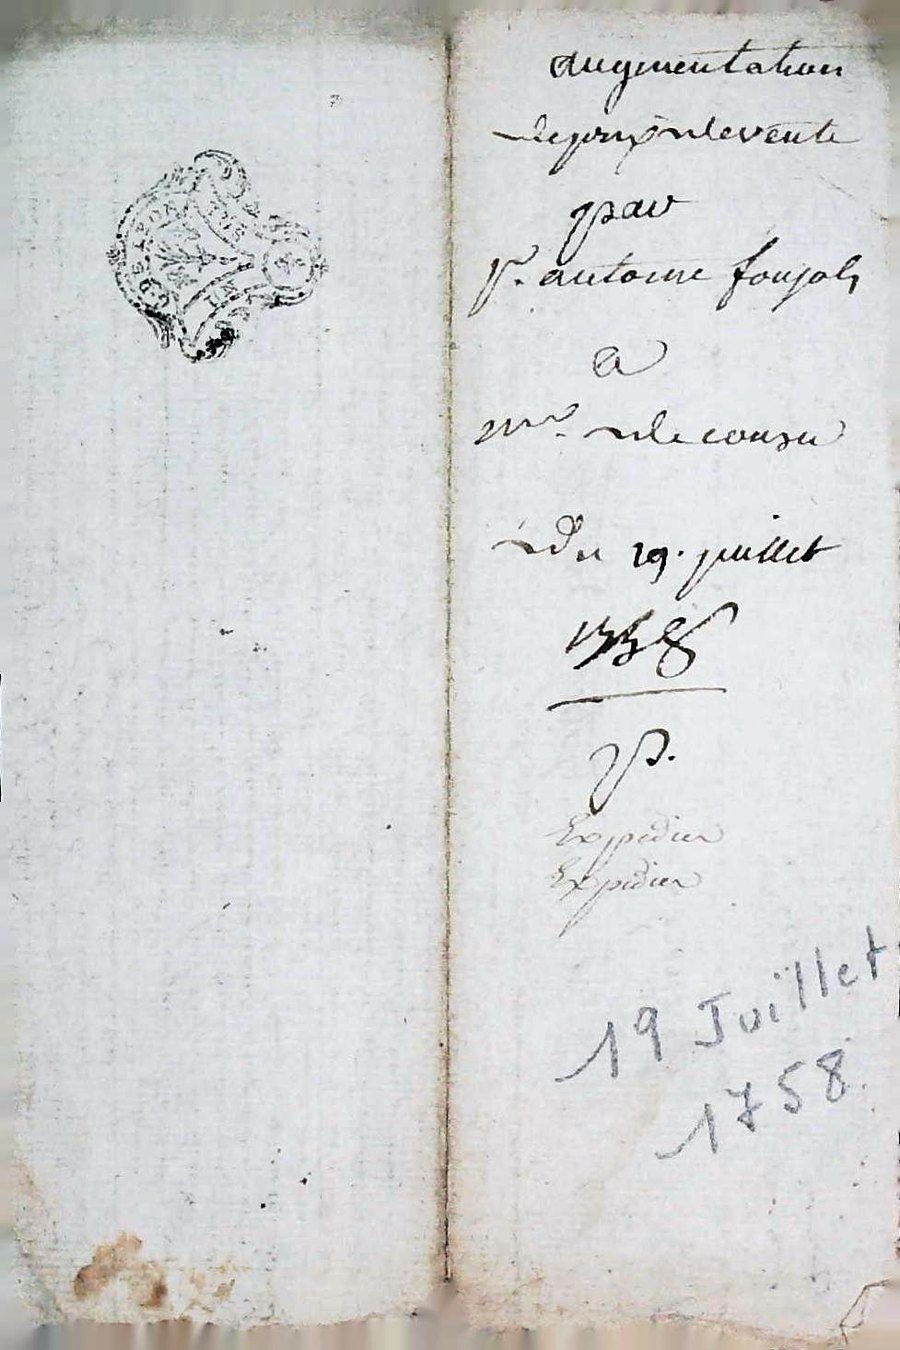 augmentation
de prix de vente
par
Sr. antoine foujols
a
Mr. de cousu
Du 19. juillet
1758
p.
Expedier
Expedier
19 Juillet
1758